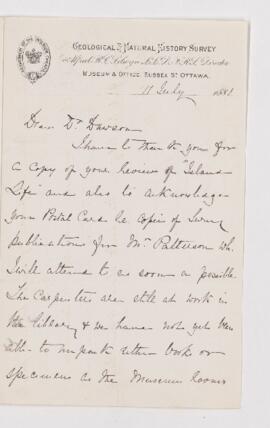 GEOLOGICAL & NATURAL HISTORY SURVEY
Alfred R. C. Selwyn LL.D. F.R.S. Director
MUSEUM & OFFICE, SUSSEX ST. OTTAWA.
11 July 1881
Dear Dr Dawson
I have to thank you for
a copy of your review of "Island
Life" and also to acknowledge
your Postal Card re copies of Survey
publications for Mr Patterson wh.
I will attend to as soon as possible
The Carpenters are still at work in
the library & we have not yet been
able to unpack either books or
specimens as the Museum rooms